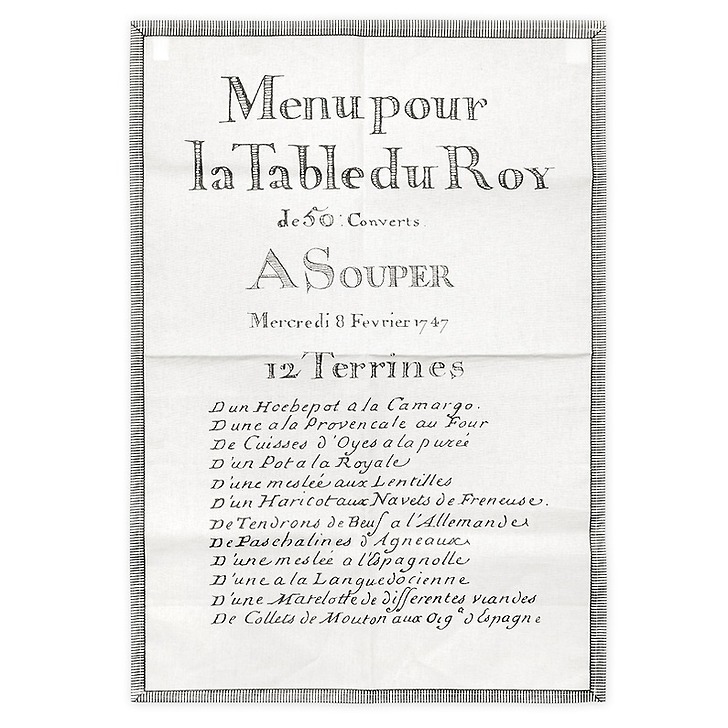 Menu pour
la Table du Roy
de 50: Converts.
A SOUPER
Mercredi 8 Fevrier 1747
12 Terrines
D un Hochepot a la Camargo.
D une a la Provencale au Four
De Cuisses d'Oyes a la pureé
D'un Pot a la Royale
D'une mesleé aux Lentilles
D'un Haricot aux Navets de Freneuse.
De Tendrons de Beuf a l'Allemande
De Paschalines d'Agneaux
D'une mesleé a l'Espagnolle
D'une a la Languedocienne
D'une Matelotte de differentes viandes
De Collets de Mouton aux Oig.ns d'Espagne